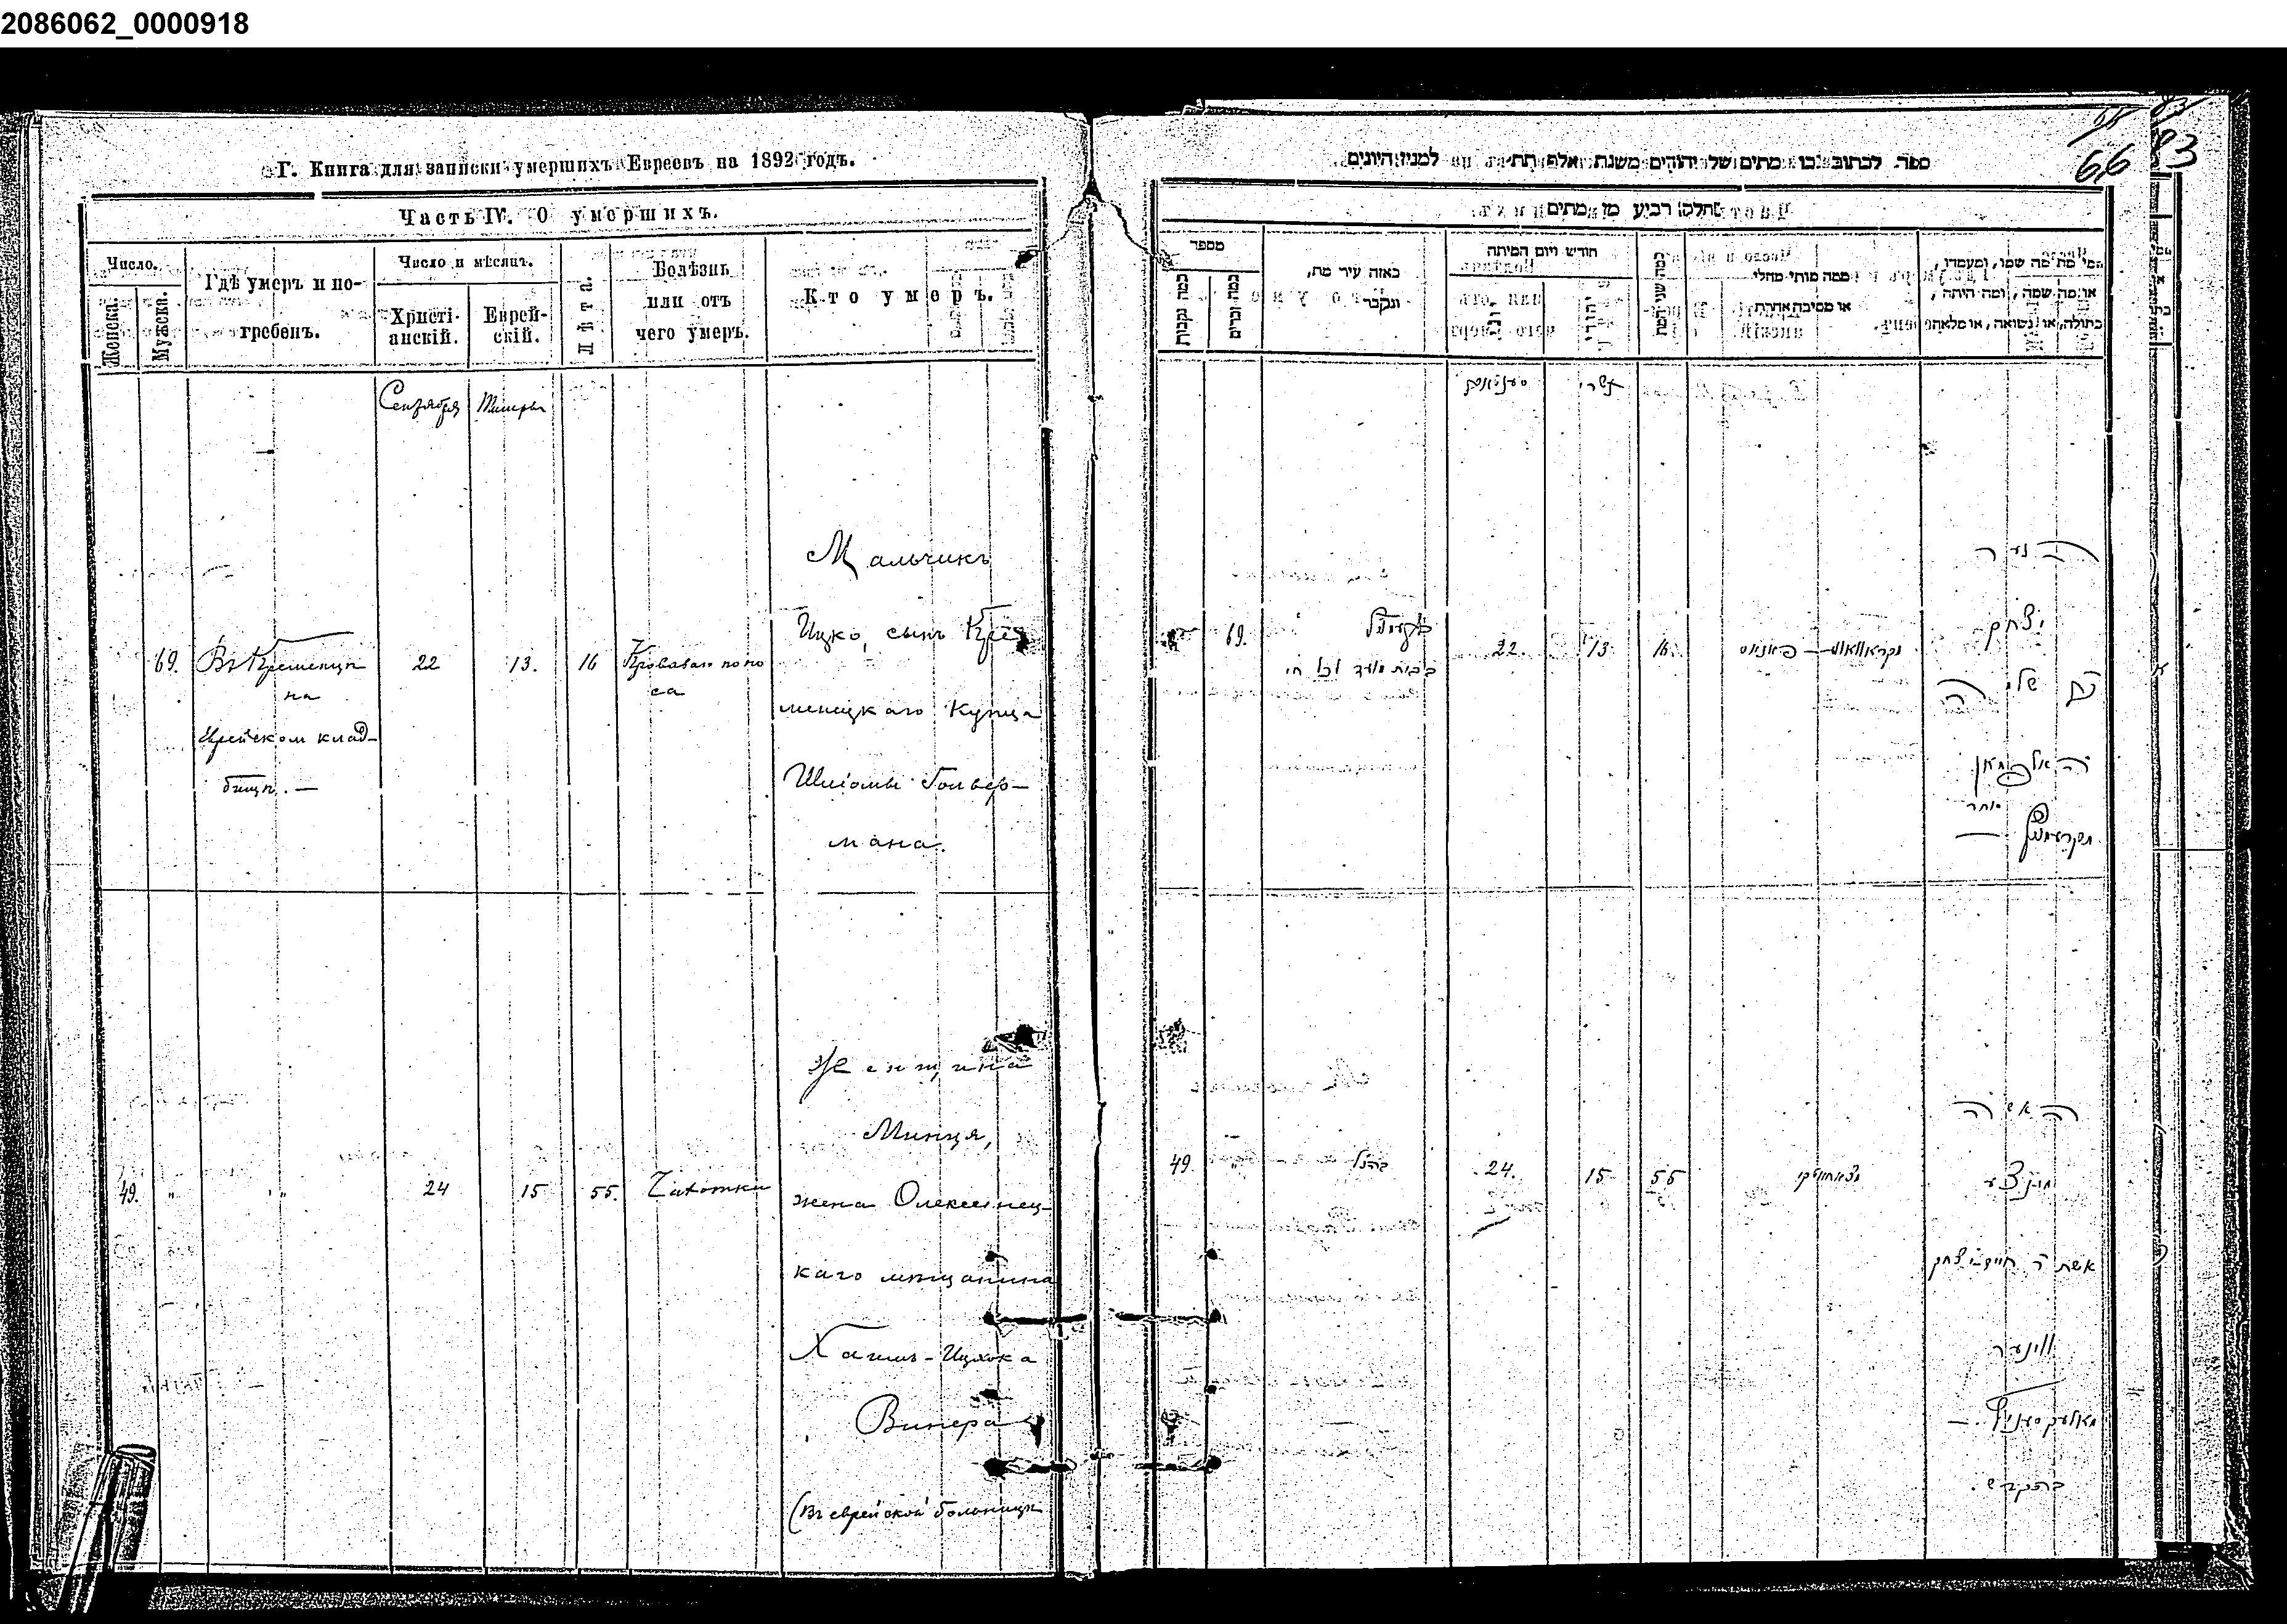 2086062_0000918
Г. Книга для записки умершихъ Евреевъ на 1892 годъ.
Часть IV. О умершихъ.
Число.
Женска.
Мужска.
Гдѣ умеръ и по-
гребенъ.
Число и мѣсяцъ.
Христі-
анскій.
Еврей-
скій.
Лѣта.
Болѣзнь
или отъ
чего умеръ.
Кто умеръ.
Сентября
Тишры
69.
Въ Кременцѣ
на
еврейском клад-
бищѣ. —
22
13.
16
Кровавая поно
са
Мальчикъ
Ицко, сынъ Кре
менецкаго Купца
Шліомы Гольвер-
мана.
49.
"
"
24
15
55.
Чахотки
Женщина
Минця,
жена Олексинец-
каго мѣщанина
Хаимъ-Ицхока
Винера
(Въ еврейской больницѣ
66
83
ספר לכתוב בו מתים של יהודים משנת אלף תת
למנין היונים
חלק רביע מן מתים
מספר
כמה נקבות
כמה זכרים
באזה עיר מת,
ונקבר
חודש ויום המיתה
יהודי
כמה שני המת
ממה מותי מחלי
או מסיבה אחרת
מי מת מה שמו, ומעמדו,
או מה שמה, ומה היתה,
בתולה, או נשואה, או אלמנה
תשרי
69.
22.
13
16
הנער
יצחק
בן שלמה
49.
כנ"ל
24.
15
55
האשה
מינצע
אשת ר חיים יצחק
ווינער
בהקדש.